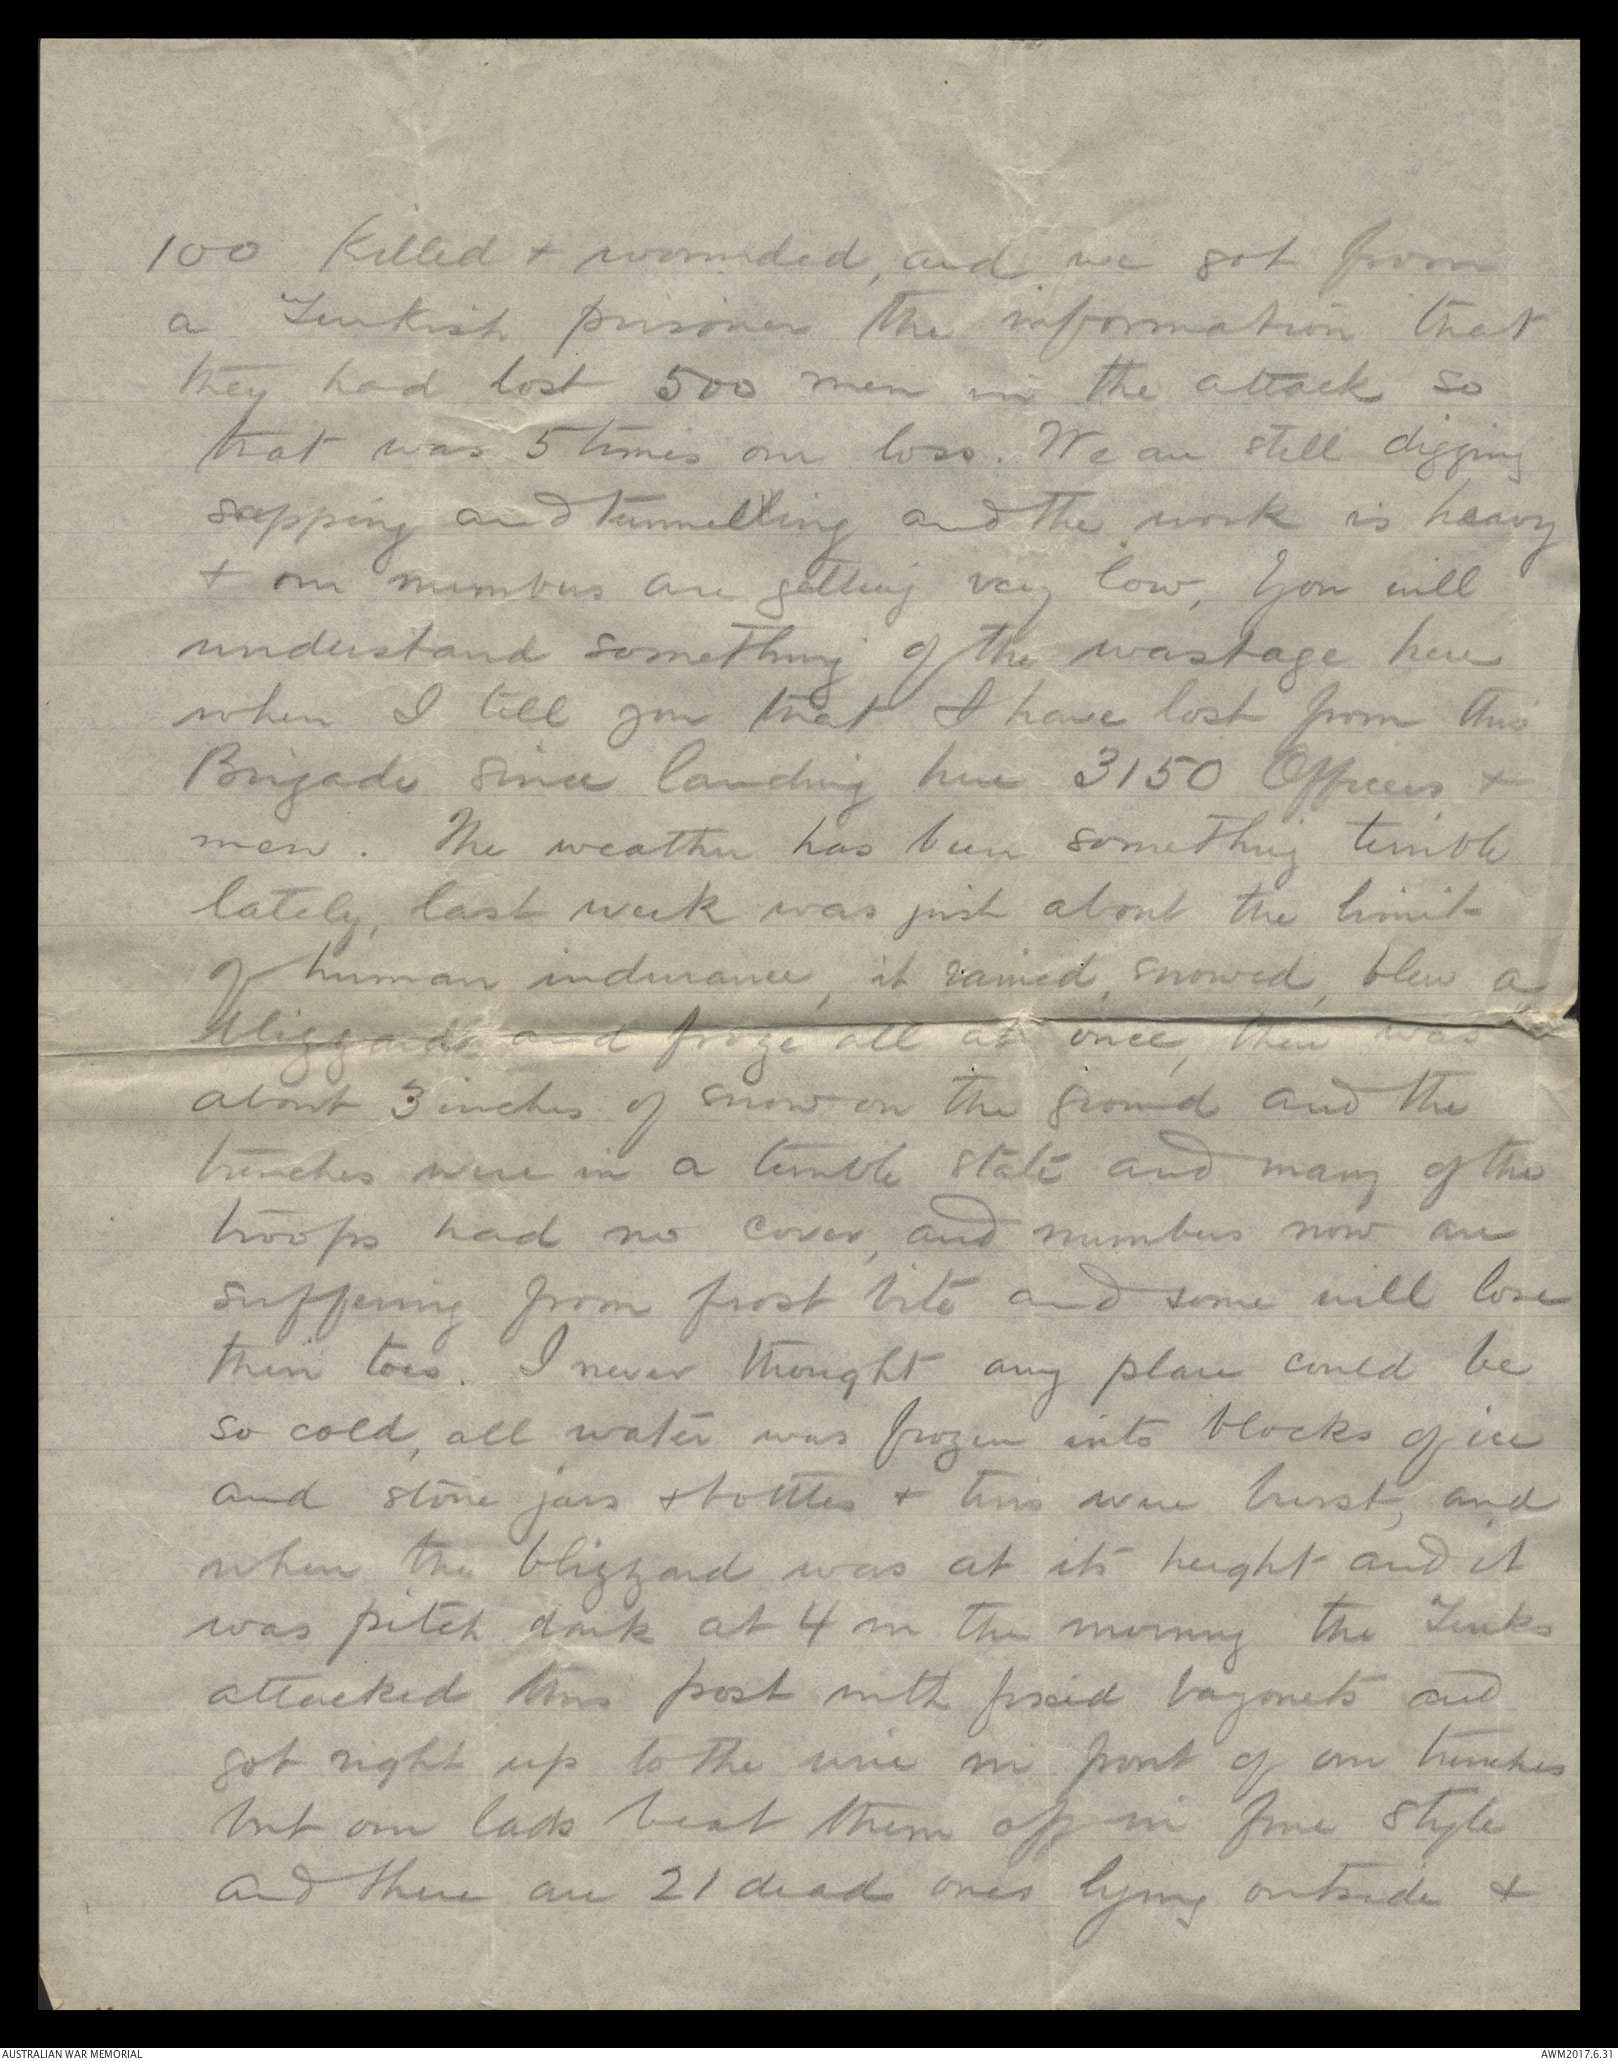 100 Killed + wounded, and we got from
a Turkish prisoner the information that
they had lost 500 men in the attack so
that was 5 times our loss. We are still digging
sapping and tunnelling and the work is heavy
+ our numbers are getting very low, You will
understand something of the wastage here
when I tell you that I have lost from this
Brigade since landing here 3150 Officers +
men. The weather has been something terrible
lately, last week was just about the limit
of human indurance, it rained, snowed, blew a
blizzard and froze all at once, there was
about 3 inches of snow on the ground and the
trenches were in a terrible state and many of the
troops had no cover, and numbers now are
suffering from frost bite and some will lose
their toes. I never thought any place could be
so cold, all water was frozen into blocks of ice
and stone jars + bottles + tins were burst, and
when the blizzard was at its height and it
was pitch dark at 4 in the morning the Turks
attacked this post with fixed bayonets and
got right up to the wire in front of our trenches
but our lads beat them off in fine style
and there are 21 dead ones lying outside +
AUSTRALIAN WAR MEMORIAL
AWM2017.6.31